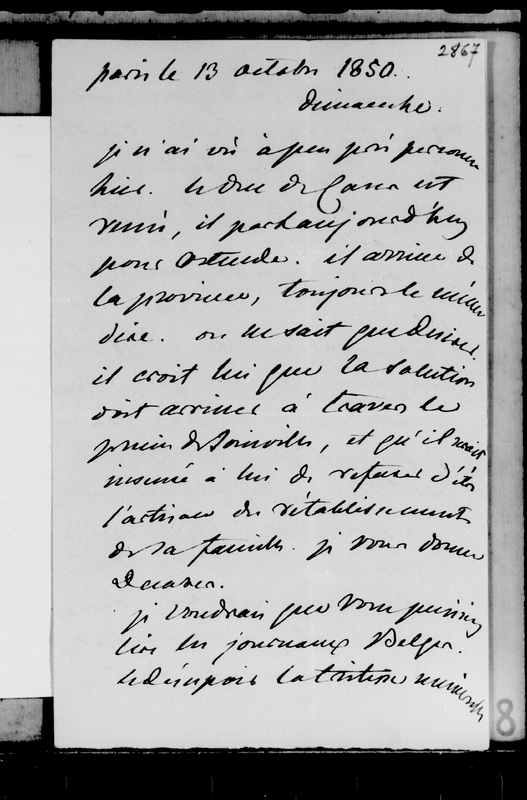 2867
paris le 13 octobre 1850.
dimanche.
je n'ai vu à peu près personne
hier. le duc de Cases est
venu, il part aujourd'huy
pour Ostende. il arrive de
la province, toujours le même
dire. on ne sait que desirer.
il croit lui que la solution
doit arriver à travers le
prince de Joinville, et qu'il serait
insensé à lui de refuser d'être
l'artisan du rétablissement
de sa famille. je vous donne
Decazes.
je voudrais que vous puissiez
lire les journaux Belges.
le désespoir la tristesse universelle
8